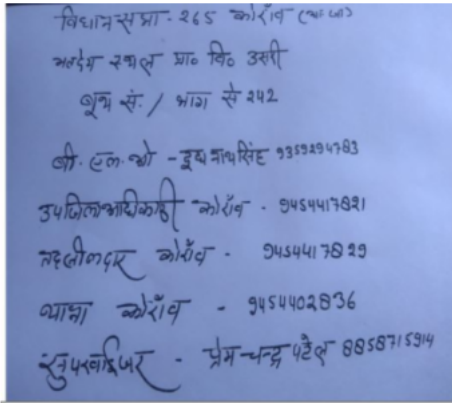 विधानसभा - 265 कोराँव (अ० जा)
मतदेय स्थल प्रा० वि० उसकी
बूथ सं. / भाग सं 242
बी. एल. ओ - सिंह 9359294783
उपजिलाअधिकारी कोराँव - 9454417821
तहसीलदार कोराँव - 9454417829
थाना कोराँव - 9454402836
सुपरवाईजर - प्रेम चन्द्र पटेल 8858715914